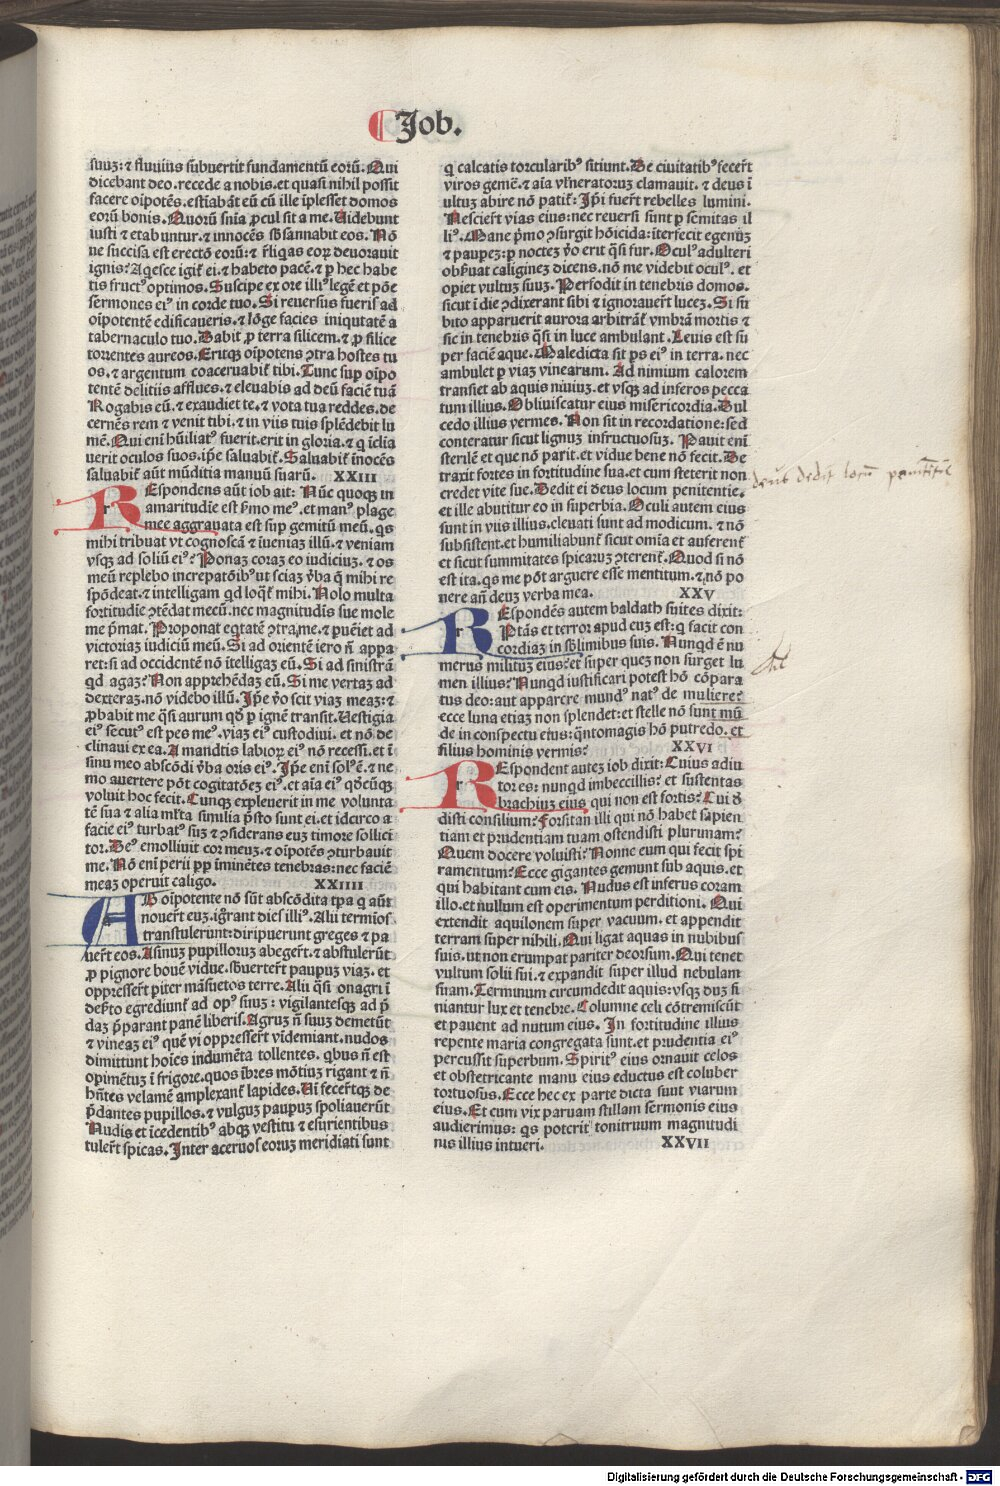 Job.
suuz: ⁊ fluuius subuertit fundamentū eorū. Qui
dicebant deo. recede a nobis. et quasi nihil possit
facere oīpotēs. estīabāt eū cū ille īplesset domos
eorū bonis. Quorū snīa ꝓcul sit a me. Uidebunt
iusti ⁊ letabuntur. ⁊ innocēs sbsannabit eos. Nō
ne succisa est erectō eorū: ⁊ rliqas eoꝝ deuorauit
ignis? Aqesce igit ei. ⁊ habeto pacē. ⁊ p hec habe
bis fructꝰ optimos. Suscipe ex ore illiꝰ legē et pōe
sermones eiꝰ in corde tuo. Si reuersus fueris ad
oīpotentē edificaueris. ⁊ lōge facies iniqutatē a
tabernaculo tuo. Dabit ꝓ terra silicem. ⁊ ꝓ silice
torrentes aureos. Eritqꝫ oīpotens ꝯtra hostes tu
os. ⁊ argentum coaceruabit tibi. Tunc sup oīpo
tentē delitiis afflues. ⁊ eleuabis ad deū faciē tuā
Rogabis eū. ⁊ exaudiet te. ⁊ vota tua reddes. de
cernes rem ⁊ veniet tibi. ⁊ in viis tuis splēdebit lu
mē. Qui eni hūiliatꝰ fuerit. erit in gloria. ⁊ q īclia
uerit oculos suos. ipse saluabit. Saluabit īnocēs
saluabit aūt mūditia manuū suarū. XXIII
REspondens aūt iob ait: Nūc quoqꝫ in
amaritudīe est sꝰmo meꝰ. et manꝰ plage
mee aggrauata est sup gemitū meū. qs
mihi tribuat vt cognoscā ⁊ īueniaꝫ illū. ⁊ veniam
vsqꝫ ad soliū eiꝰ? Ponaꝫ coraꝫ eo iudiciuꝫ. ⁊ os
meū replebo increpatōibꝰ ut sciaꝫ vba q mihi re
spōdeat. ⁊ intelligam qd loqt mihi. Nolo multa
fortitudīe ꝯtēdat mecū. nec magnitudīs sue mole
me pmat. Proponat eqtatē ꝯtra me. ⁊ pueīet ad
victoriaꝫ iudiciū meū. Si ad orientē iero ñ appa
ret: si ad occidentē nō ītelligaꝫ eū. Si ad sinistrā
qd agaꝫ? Non apprehēdaꝫ eū. Si me vertaꝫ ad
dexteraꝫ. nō videbo illū. Ipe vo scit viaꝫ meaꝫ: ⁊
ꝓbabit me qsi aurum qd p ignē transit. Uestigia
eiꝰ secutꝰ est pes meꝰ. viaꝫ eiꝰ custodiui. et nō de
clinaui ex ea. A mandtis labioꝝ eiꝰ nō recessi. et ī
sinu meo abscōdi vba oris eiꝰ. Ipe eni solꝰ ē. ⁊ ne
mo auertere pōt cogitatōeꝫ eiꝰ. et aīa eiꝰ qdcūqꝫ
voluit hoc fecit. Cunqꝫ expleuerit in me volunta
tē sua ⁊ alia mlta similia psto sunt ei. et idcirco a
facie eiꝰ turbatꝰ suꝫ ⁊ ꝯsiderans euꝫ timore sollici
tor. Deꝰ emolliuit cor meuꝫ. ⁊ oīpotēs ꝯturbauit
me. Nō eni perii ppꝫ iminētes tenebras: nec faciē
meaꝫ operuit caligo. XXIIII
AB oīpotente nō sūt abscōdita tpa q aūt
nouert euꝫ. igrant dies illiꝰ. Alii termīos
transtulerunt: diripuerunt greges ⁊ pa
uert eos. Asinuꝫ pupilloruꝫ abegert. ⁊ abstulerūt
ꝓ pignore bouē vidue. sbuertert paupuꝫ viaꝫ. et
oppressert piter māsuetos terre. Alii qsi onagri ī
deꝑto egrediunt ad opꝰ suuꝫ: vigilantesqꝫ ad p
daꝫ pparant panē liberis. Agruꝫ ñ suuꝫ demetūt
⁊ vineaꝫ eiꝰ quē vi oppressert vīdemiant. nudos
dimittunt hoīes indumēta tollentes. qbus ñ est
opimētuꝫ ī frigore. quos ībres mōtiuꝫ rigant ⁊ ñ
hñtes velamē amplexant lapides. Ui fecertqꝫ de
pdantes pupillos. ⁊ vulguꝫ paupuꝫ spoliauerūt
Nudis et īcedentibꝰ absqꝫ vestitu ⁊ esurientibus
tulert spicas. Inter aceruos eoruꝫ meridiati sunt
q calcatis torcularibꝰ sitiunt. De ciuitatibꝰ fecert
viros gemē. ⁊ aīa vlneratoruꝫ clamauit. ⁊ deus ī
ultuꝫ abire nō patit: Ipi fuert rebelles lumini.
Nesciert vias eius: nec reuersi sunt p semitas il
liꝰ. Mane pmo ꝯsurgit hōicida: īterfecit egenuꝫ
⁊ paupeꝫ: p noctez vo erit qsi fur. Oculꝰ adulteri
obsuat caliginez dicens. nō me videbit oculꝰ. et
opiet vultuꝫ suuꝫ. Perfodit in tenebris domos.
sicut ī die ꝯdixerant sibi ⁊ ignorauert lucez. Si su
bito apparuerit aurora arbitrāt vmbrā mortis ⁊
sic in tenebris qsi in luce ambulant. Leuis est su
per faciē aque. Maledicta sit ps eiꝰ in terra. nec
ambulet p viaꝫ vinearum. Ad nimium calorem
transiet ab aquis niuiuꝫ. et vsqꝫ ad inferos pecca
tum illius. Obliuiscatur eius misericordia. Dul
cedo illius vermes. Non sit in recordatione: sed
conteratur sicut lignuꝫ infructuosuꝫ. Pauit eni
sterilē et que nō parit. et vidue bene nō fecit. De
traxit fortes in fortitudine sua. et cum steterit non
credet vite sue. Dedit ei deus locum penitentie.
et ille abutitur eo in superbia. Oculi autem eius
sunt in viis illius. eleuati sunt ad modicum. ⁊ nō
subsistent. et humiliabunt sicut omīa et auferent
et sicut summitates spicaruꝫ ꝯterent. Quod si nō
est ita. qs me pōt arguere esse mentitum. ⁊ nō po
nere an deuꝫ verba mea. XXV
REspondēs autem baldath suites dixit:
Ptās et terror apud euꝫ est: q facit con
cordiaꝫ in sblimibus suis. Nunqd ē nu
merus militūꝫ eius? et super quez non surget lu
men illius? Nunqd iustificari potest hō cōpara
tus deo: aut apparere mundꝰ natꝰ de muliere?
ecce luna etiaꝫ non splendet: et stelle nō sunt mū
de in conspectu eius: qntomagis hō putredo. et
filius hominis vermis? XXVI
REspondent autez iob dixit: Cuius adiu
tor es: nunqd imbecillis? et sustentas
brachiuꝫ eius qui non est fortis? Cui d
disti consilium? Forsitan illi qui nō habet sapien
tiam et prudentiam tuam ostendisti plurimam?
Quem docere voluisti? Nonne eum qui fecit spi
ramentum? Ecce gigantes gemunt sub aquis. et
qui habitant cum eis. Nudus est inferus coram
illo. et nullum est operimentum perditioni. Qui
extendit aquilonem super vacuum. et appendit
terram super nihili. Qui ligat aquas in nubibus
suis. ut non erumpat pariter deorsum. Qui tenet
vultum solii sui. ⁊ expandit super illud nebulam
suam. Terminum circumdedit aquis: vsqꝫ duꝫ fi
niantur lux et tenebre. Columne celi cōtremiscūt
et pauent ad nutum eius. In fortitudine illius
repente maria congregata sunt. et prudentia eiꝰ
percussit superbum. Spiritꝰ eius ornauit celos
et obstetricante manu eius eductus est coluber
tortuosus. Ecce hec ex parte dicta sunt viarum
eius. Et cum vix paruam stillam sermonis eius
audierimus: qs poterit tonitruum magnitudi
nis illius intueri. XXVII
deus dedit locū penitētie
Digitalisierung gefördert durch die Deutsche Forschungsgemeinschaft - DFG